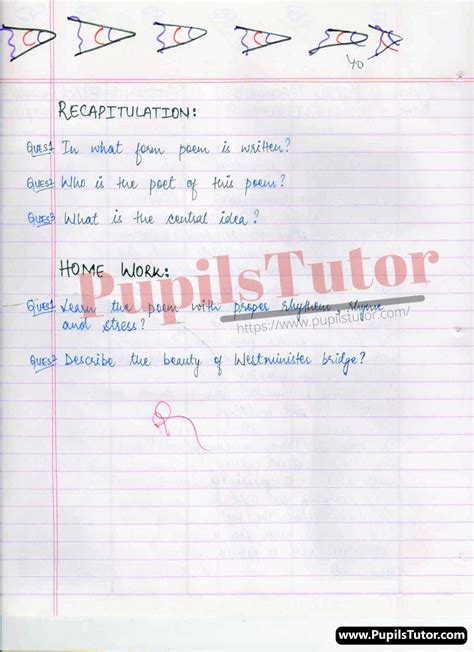 40
RECAPITULATION:
Ques1 In what form poem is written?
Ques2 Who is the poet of this poem?
Ques3 What is the central idea?
HOME WORK:
PupilsTutor
Ques1 Learn the poem with proper rhythem, rhyme
https://www.pupilstutor.com/
and stress?
Ques2 Describe the beauty of Westminister bridge?
www.PupilsTutor.com